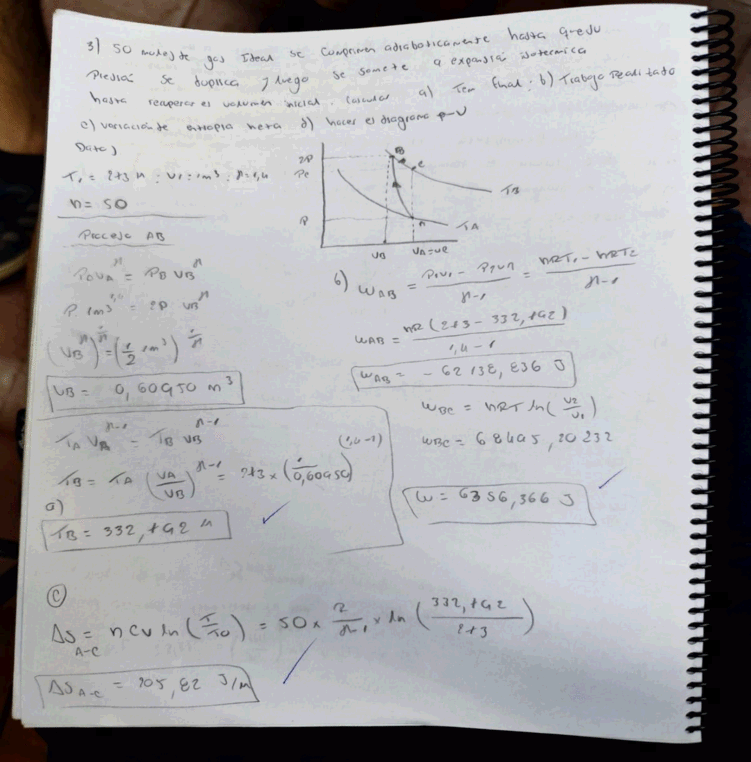 3) 50 moles de gas Ideal se comprimen adiabaticamente hasta que su
Presión se duplica y luego se somete a expansión isotermica
hasta recuperar el volumen inicial. Calcular a) Tem final; b) Trabajo Realizado
c) variación de entropia neta d) hacer el diagrama P-V
Datos
T₁ = 273 K ; V₁ = 1m³ ; γ = 1,4
n = 50
2P
Pc
P
B
C
A
TB
TA
VB
VA=VC
Proceso AB
P₀VA^γ = PB VB^γ
P 1m³^1,4 = 2P VB^γ
(VB^γ)^1/γ = (1/2 1m³)^1/γ
VB = 0,60950 m³
TA VA^γ-1 = TB VB^γ-1
TB = TA (VA/VB)^γ-1 = 273 × (1/0,60950)^(1,4-1)
a)
TB = 332,792 K
b) WAB = (P₁V₁ - P₂V₂)/(γ-1) = (nRT₁ - nRT₂)/(γ-1)
WAB = nR(273 - 332,792)/(1,4-1)
WAB = - 62138,836 J
WBC = nRT ln(V2/V1)
WBC = 68495,20232
W = 6356,366 J
C
ΔS A-C = n CV ln(T/T0) = 50 × R/(γ-1) × ln(332,792/273)
ΔS A-C = 205,82 J/K